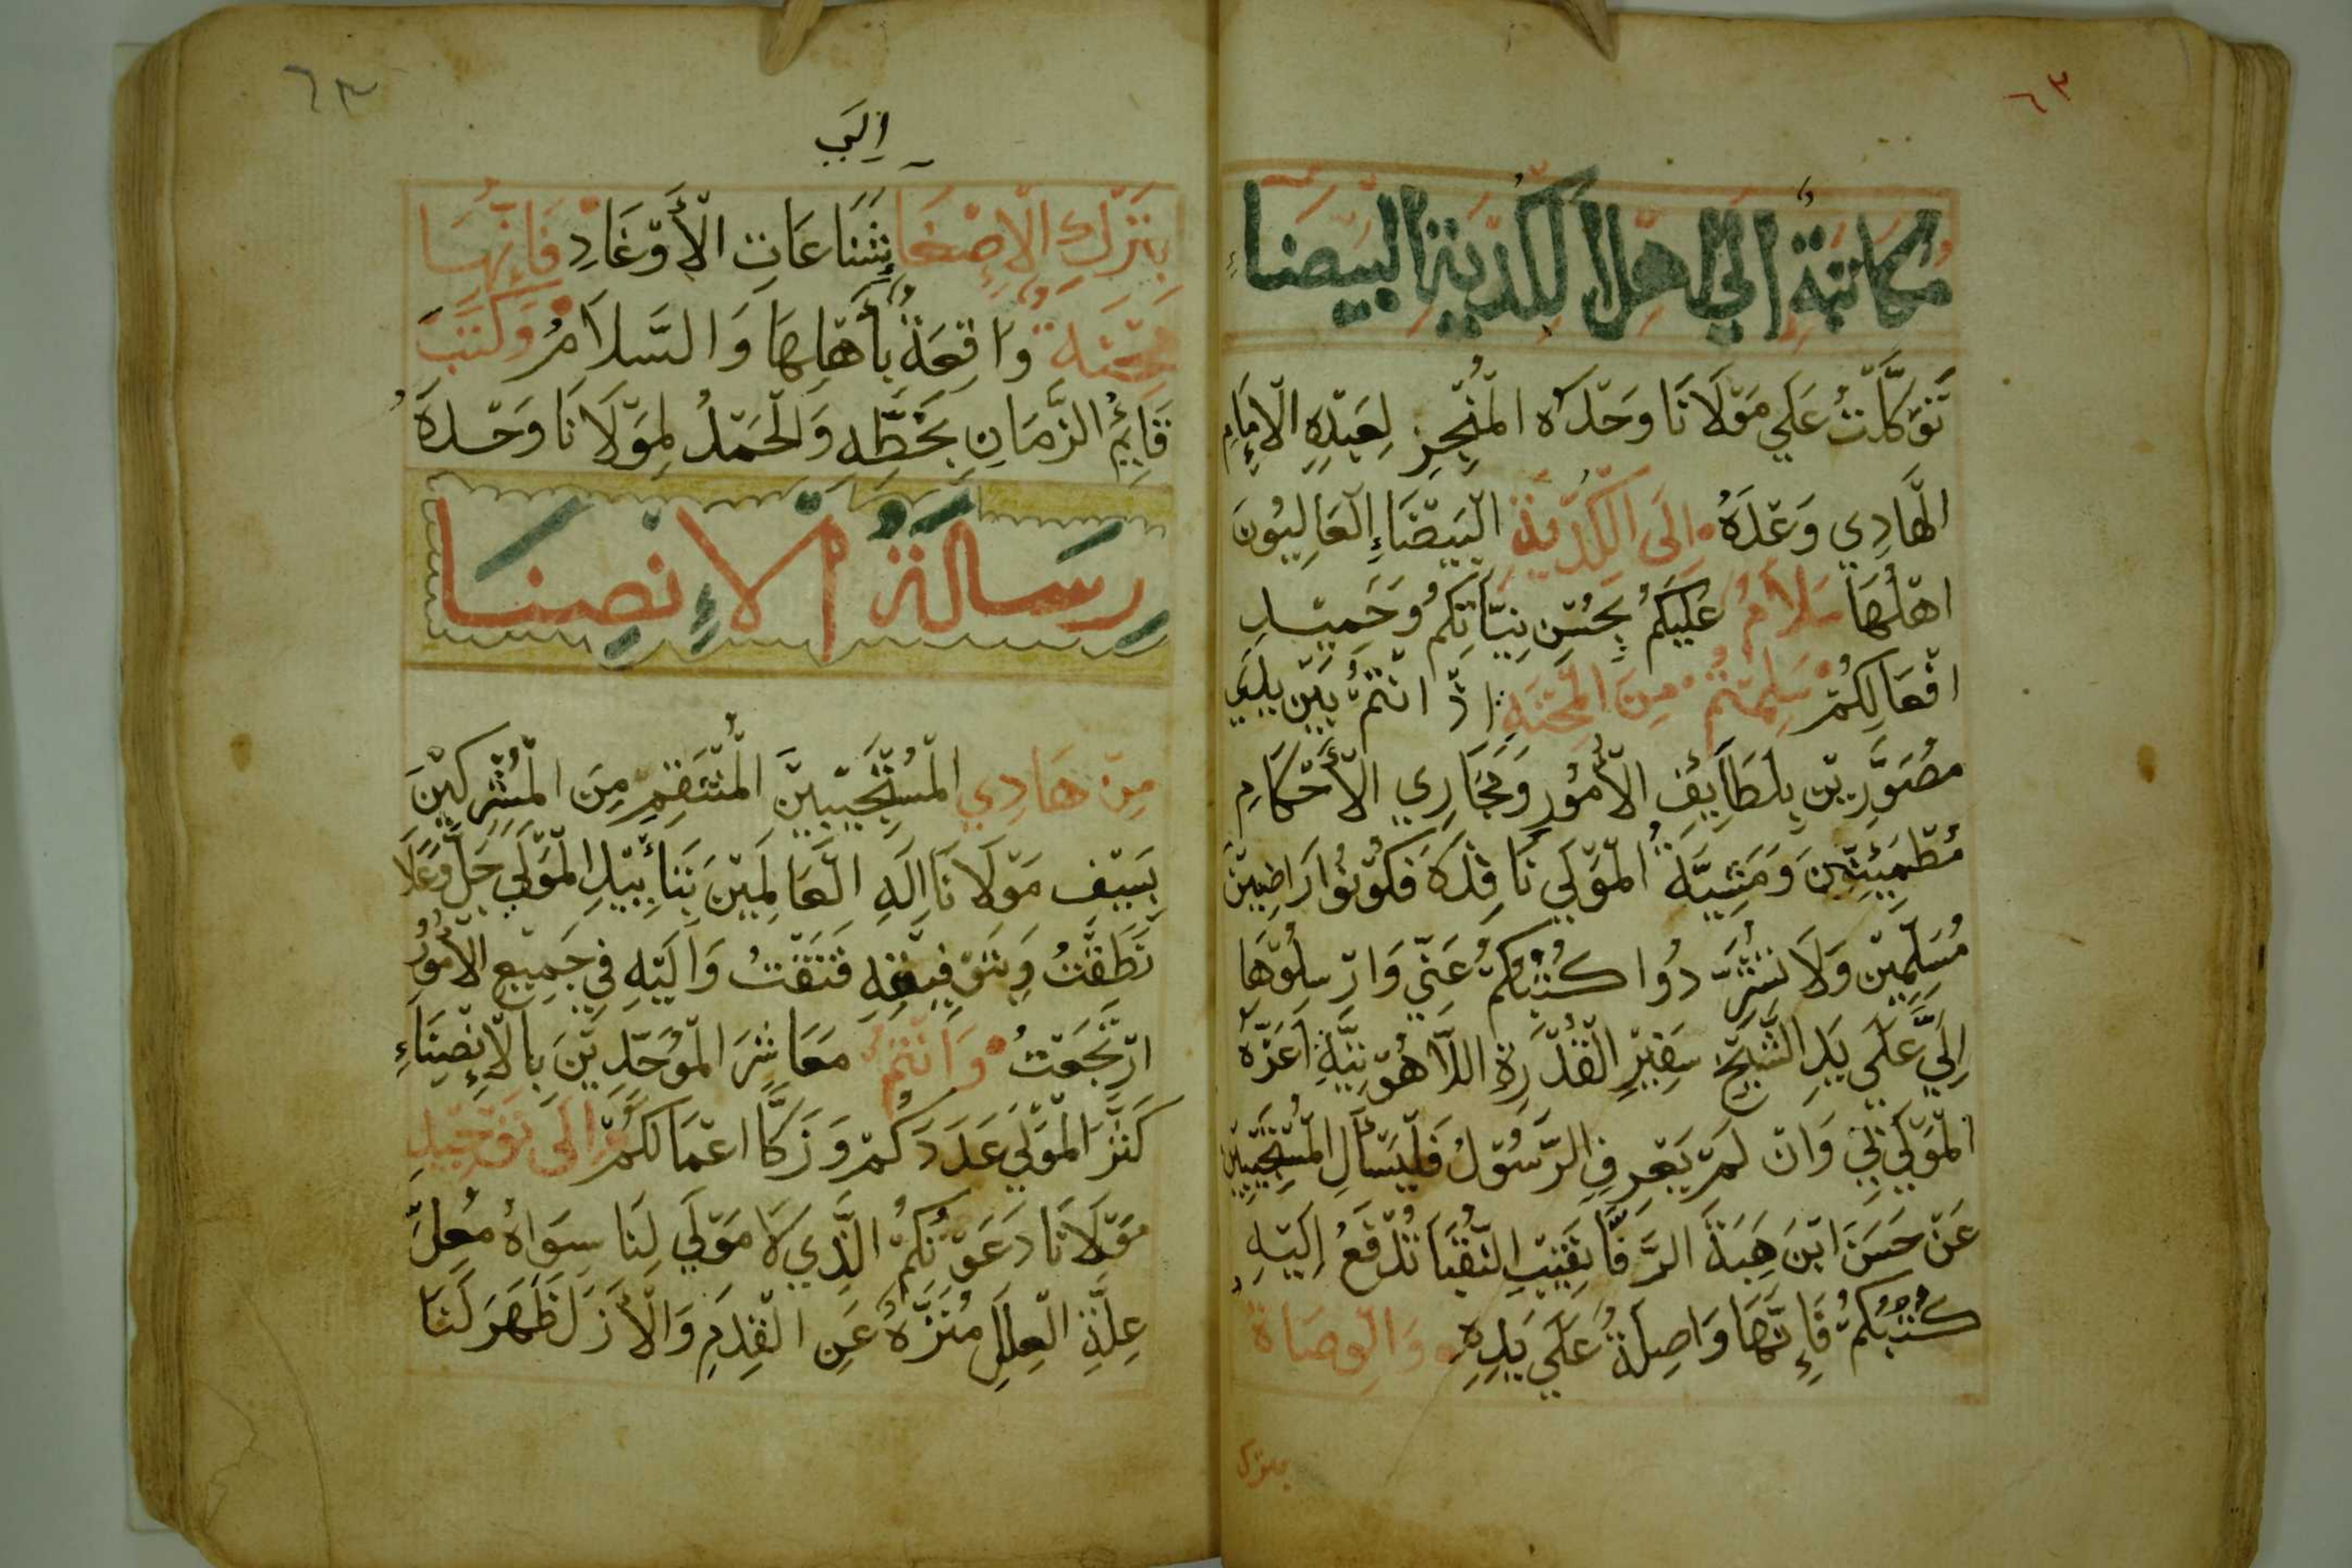 ٦٣
مُكَاتَبَةٌ إِلَى اهْلِ الكُدْيَةِ البَيْضَاءِ
تَوَكَّلْتُ عَلَي مَوْلَانَا وَحْدَهُ الْمُنْجِزِ لِعَبْدِهِ الْإِمَامِ
الْهَادِي وَعْدَهُ إِلَى الْكُدْيَةِ الْبَيْضَاءِ الْعَالِيُونَ
اهْلُهَا سَلَامٌ عَلَيْكُمْ بِحُسْنِ نِيَّاتِكُمْ وَحَمِيْدِ
افْعَالِكُمْ سَلِمْتُمْ مِنَ الْمِحْنَةِ اذْ انْتُمْ بَيْنَ يَدَي
مُصَوَّرِيْنَ بِلَطَايِفِ الْأُمُوْرِ وَمَجَارِي الْأَحْكَامِ
مُطْمَئِنِّيْنَ وَمَشِيَّةُ الْمَوْلَي نَافِذَهْ فَكُوْنُوا رَاضِيينَ
مُسَلِّمِيْنَ وَلَا تَسْتُرُ دُوا كُتُبُكُمْ عَنِّي وَارْسِلُوْهَا
إِلَيَّ عَلَي يَدِ الشَّيْخِ سَفِيْرِ الْقُدْرَةِ اللَّاهُوْتِيَّةِ اَعَزَّهُ
الْمَوْلَي بِي وَانْ لَمْ يَعْرِفِ الرَّسُوْلُ فَلْيَسْأَلِ الْمُسْتَجِيْبِيْنَ
عَنْ حَسَنَ ابْنَ هِبَةَ الرَّفَّا نَقِيْبِ النُّقَبَا تُدْفَعُ اِلَيْهِ
كُتُبُكُمْ فَإِنَّهَا وَاصِلَةٌ عَلَي يَدِهِ وَالْوِصَاةُ
بترك
٦٣
اِلَي
بِتَرْكِ الْإِصْغَا بِشَنَاعَاتِ الْأَوْغَادِ فَإِنَّهَا
مِحْنَة وَاقِعَةٌ بِأَهْلِهَا وَالسَّلَامُ وَكَتَبَ
قَايِمُ الزَّمَانِ بِخَطِّهِ وَالْحَمْدُ لِمَوْلَانَا وَحْدَهُ
رِسَالَةُ الْإِنْصِنَا
مِنْ هَادِي الْمُسْتَجِيْبِيْنَ الْمُنْتَقِمِ مِنَ الْمُشْرِكِيْنَ
بِسَيْفِ مَوْلَانَا اِلَهِ الْعَالَمِيْنَ بِتَأْيِيْدِ الْمَوْلَي جَلَّ وَعَلَا
نَطَقْتُ وَبِتَوْفِيْقِهِ فَتَقْتُ وَاِلَيْهِ فِي جَمِيْعِ الْأُمُوْرُ
ارْتَجَعْتُ وَانْتُمْ مَعَاشِرَ الْمُوَحِّدِيْنَ بِالْإِنْصِنَاءِ
كَثَّرَ الْمَوْلَي عَدَدَكُمْ وَزَكَّا اعْمَالَكُمْ اِلَى تَوْحِيْدِ
مَوْلَانَا دَعَوْتُكُمْ الَّذِي لَا مَوْلَي لَنَا سِوَاهُ مُعِلِّ
عِلَّةِ الْعِلَلِ مُنَزَّهٌ عَنِ الْقِدَمِ وَالْأَزَلِ ظَهَرَ لَنَا